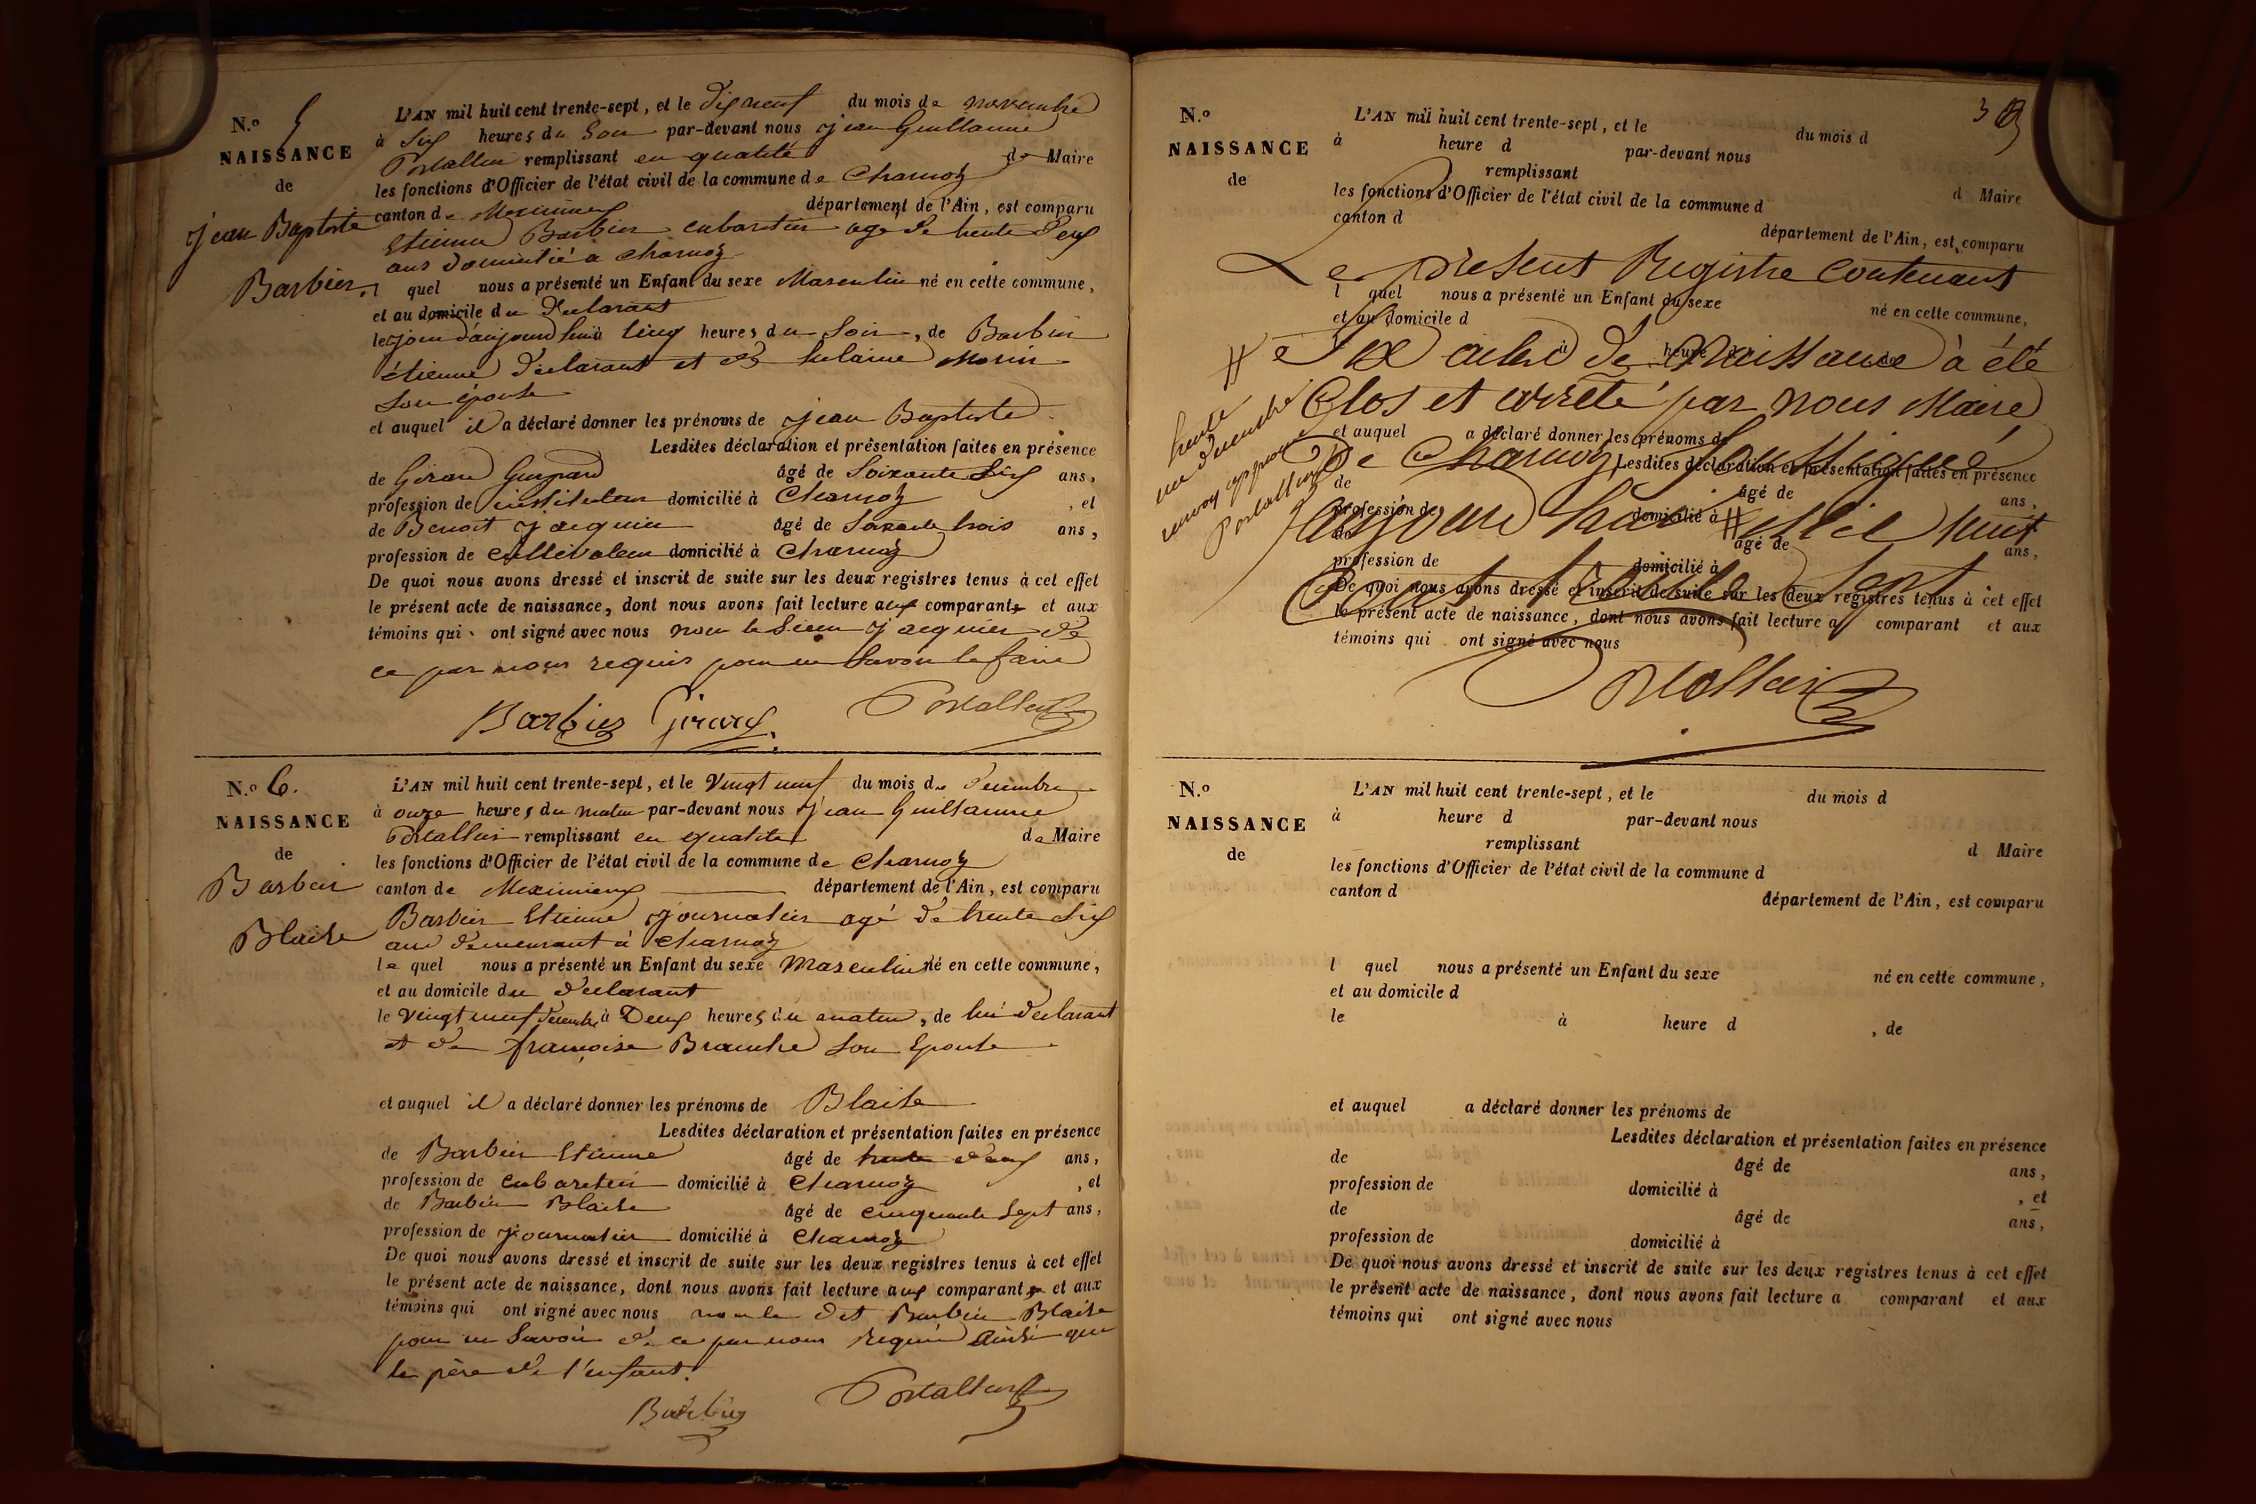 N.º 5
NAISSANCE
de
Jean Baptiste
Barbier
L'AN mil huit cent trente-sept, et le dix neuf du mois de novembre
à six heures du soir par-devant nous jean Guillaume
Portallier remplissant en qualité de Maire
les fonctions d'Officier de l'état civil de la commune de Charnoz
canton de Meximieux département de l'Ain, est comparu
Etienne Barbier cabaretier agé de trente deux
ans domicilié à charnoz
l quel nous a présenté un Enfant du sexe Masculin né en cette commune,
et au domicile du déclarant
le jour d'aujourd'huià cinq heures du Soir, de Barbier
étienne déclarant et de Morin
son épouse
et auquel il a déclaré donner les prénoms de jean Baptiste
Lesdites déclaration et présentation faites en présence
de Girard Guspard âgé de Soixante Six ans,
profession de instituteur domicilié à Charnoz, et
de Benoit jacquier âgé de Soixante trois ans,
profession de cultivateur domicilié à Charnoz
De quoi nous avons dressé et inscrit de suite sur les deux registres tenus à cet effet
le présent acte de naissance, dont nous avons fait lecture aux comparants et aux
témoins qui ont signé avec nous non le Sieur jacquier de
ce par nous requis pour ne Savoir le faire
Barbier Girard Portallier
N.º 6.
NAISSANCE
de
Barbier
Blaise
L'AN mil huit cent trente-sept, et le vingt neuf du mois de décembre
à onze heures du matin par-devant nous jean Guillaume
Portallier remplissant en qualité de Maire
les fonctions d'Officier de l'état civil de la commune de Charnoz
canton de Meximieux département de l'Ain, est comparu
Barbier Etienne journalier agé de trente six
ans demeurant à Charnoz
le quel nous a présenté un Enfant du sexe Masculin né en cette commune,
et au domicile du déclarant
le vingt neuf décembre à Deux heures du matin, de lui déclarant
et de françoise Branche son Epouse
et auquel il a déclaré donner les prénoms de Blaise
Lesdites déclaration et présentation faites en présence
de Barbier Etienne âgé de trente deux ans,
profession de cabaretier domicilié à Charnoz, et
de Barbier Blaise âgé de cinquante Sept ans,
profession de journalier domicilié à Charnoz
De quoi nous avons dressé et inscrit de suite sur les deux registres tenus à cet effet
le présent acte de naissance, dont nous avons fait lecture aux comparants et aux
témoins qui ont signé avec nous non le dit Barbier Blaise
pour ne Savoir de ce par nous Requis ainsi que
le père de l'enfant.
Barbier Portallier
3
N.º
NAISSANCE
de
L'AN mil huit cent trente-sept, et le du mois d
à heure d par-devant nous
remplissant d Maire
les fonctions d'Officier de l'état civil de la commune d
canton d département de l'Ain, est comparu
Le présent Registre contenant
l quel nous a présenté un Enfant du sexe né en cette commune,
et au domicile d
le à heure d , de
Six actes de Naissance à été
Clos et arrêté par nous Maire
et auquel a déclaré donner les prénoms de
De Charnoz, Soussigné
Lesdites déclaration et présentation faites en présence
de âgé de ans,
profession de domicilié à
aujourd'hui # Mil huit
de âgé de ans,
profession de domicilié à
Cent trente Sept
De quoi nous avons dressé et inscrit de suite sur les deux registres tenus à cet effet
le présent acte de naissance, dont nous avons fait lecture a comparant et aux
témoins qui ont signé avec nous
Portallier
# trente
un decembre
renvoy approuvé
Portallier
N.º
NAISSANCE
de
L'AN mil huit cent trente-sept, et le du mois d
à heure d par-devant nous
remplissant d Maire
les fonctions d'Officier de l'état civil de la commune d
canton d département de l'Ain, est comparu
l quel nous a présenté un Enfant du sexe né en cette commune,
et au domicile d
le à heure d , de
et auquel a déclaré donner les prénoms de
Lesdites déclaration et présentation faites en présence
de âgé de ans,
profession de domicilié à , et
de âgé de ans,
profession de domicilié à
De quoi nous avons dressé et inscrit de suite sur les deux registres tenus à cet effet
le présent acte de naissance, dont nous avons fait lecture a comparant et aux
témoins qui ont signé avec nous